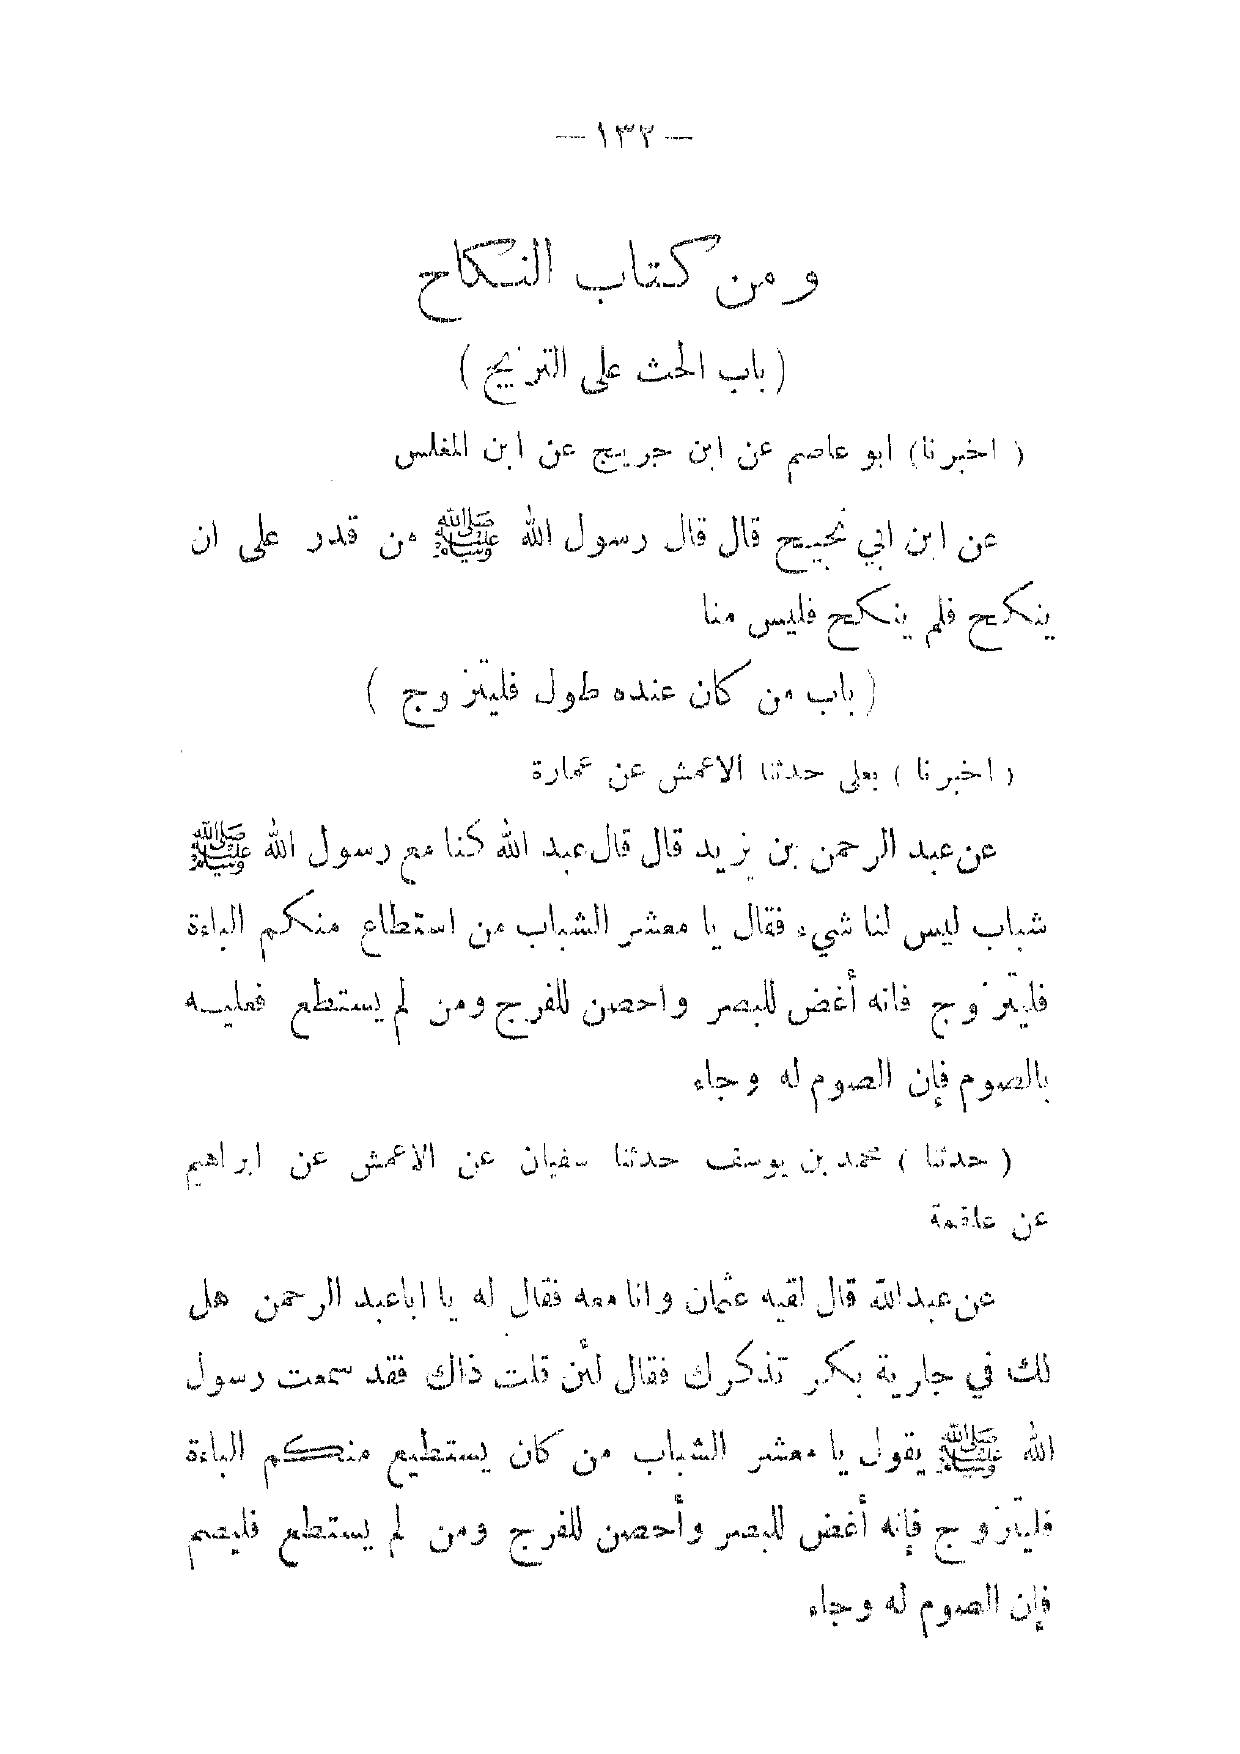 — ١٣٢ —
ومن كتاب النكاح
( باب الحث على التزيج )
( اخبرنا) ابو عاصم عن ابن جريج عن ابن المغلس
عن ابن ابي نجيح قال قال رسول الله ﷺ من قدر على ان
ينكح فلم ينكح فليس منا
( باب من كان عنده طول فليتزوج )
( اخبرنا ) يعلى حدثنا الاعمش عن عمارة
عن عبد الرحمن بن يزيد قال قال عبد الله كنا مع رسول الله ﷺ
شباب ليس لنا شيء فقال يا معشر الشباب من استطاع منكم الباءة
فليتزوج فانه أغض للبصر واحصن للفرج ومن لم يستطع فعليه
بالصوم فإن الصوم له وجاء
( حدثنا ) محمد بن يوسف حدثنا سفيان عن الاعمش عن ابراهيم
عن علقمة
عن عبد الله قال لقيه عثمان وانا معه فقال له يا اباعبد الرحمن هل
لك في جارية بكر تذكرك فقال لئن قلت ذاك فقد سمعت رسول
الله ﷺ يقول يا معشر الشباب من كان يستطيع منكم الباءة
فليتزوج فإنه أغض للبصر وأحصن للفرج ومن لم يستطع فليصم
فإن الصوم له وجاء